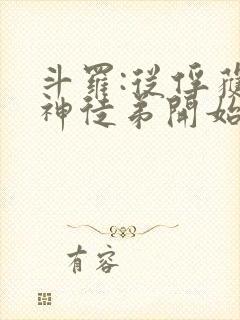 斗羅:從俘獲
神徒弟開始
有容